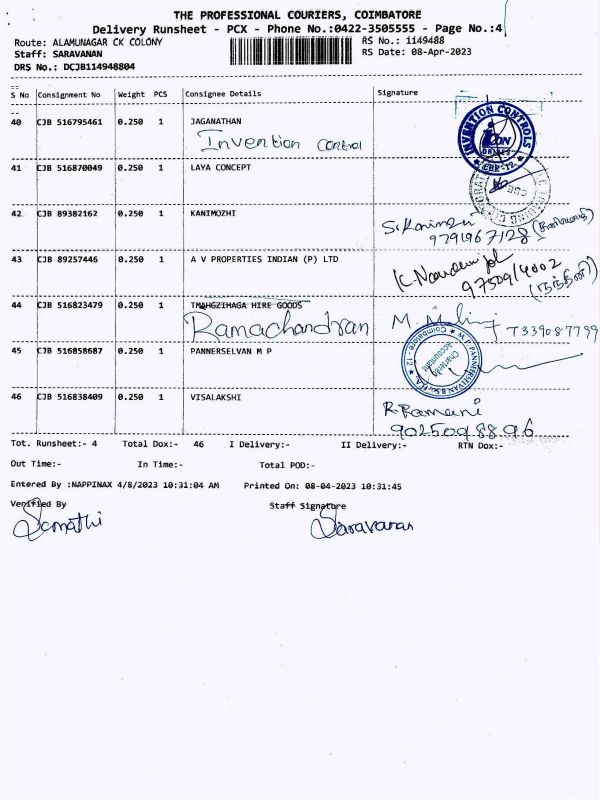 THE PROFESSIONAL COURIERS, COIMBATORE
Delivery Runsheet - PCX - Phone No.:0422-3505555 - Page No.:4
Route: ALAMUNAGAR CK COLONY RS No.: 1149488
Staff: SARAVANAN RS Date: 08-Apr-2023
DRS No.: DCJB114948804
S No Consignment No Weight PCS Consignee Details Signature
40 CJB 516795461 0.250 1 JAGANATHAN
Invention Control
INVENTION CONTROLS
ICON
DRIVES
CBE-12
41 CJB 516870049 0.250 1 LAYA CONCEPT
CBE
42 CJB 89382162 0.250 1 KANIMOZHI
9791967128
43 CJB 89257446 0.250 1 A V PROPERTIES INDIAN (P) LTD
9750914002
(நந்தினி)
44 CJB 516823479 0.250 1 TMAHGZIHAGA HIRE GOODS
Ramachandran
7339087799
45 CJB 516858687 0.250 1 PANNERSELVAN M P
Chartered
Accountant
Coimbatore - 12
46 CJB 516838409 0.250 1 VISALAKSHI
R. Ramani
9025098896
Tot. Runsheet:- 4 Total Dox:- 46 I Delivery:- II Delivery:- RTN Dox:-
Out Time:- In Time:- Total POD:-
Entered By :NAPPINAX 4/8/2023 10:31:04 AM Printed On: 08-04-2023 10:31:45
Verified By Staff Signature
Saravanan